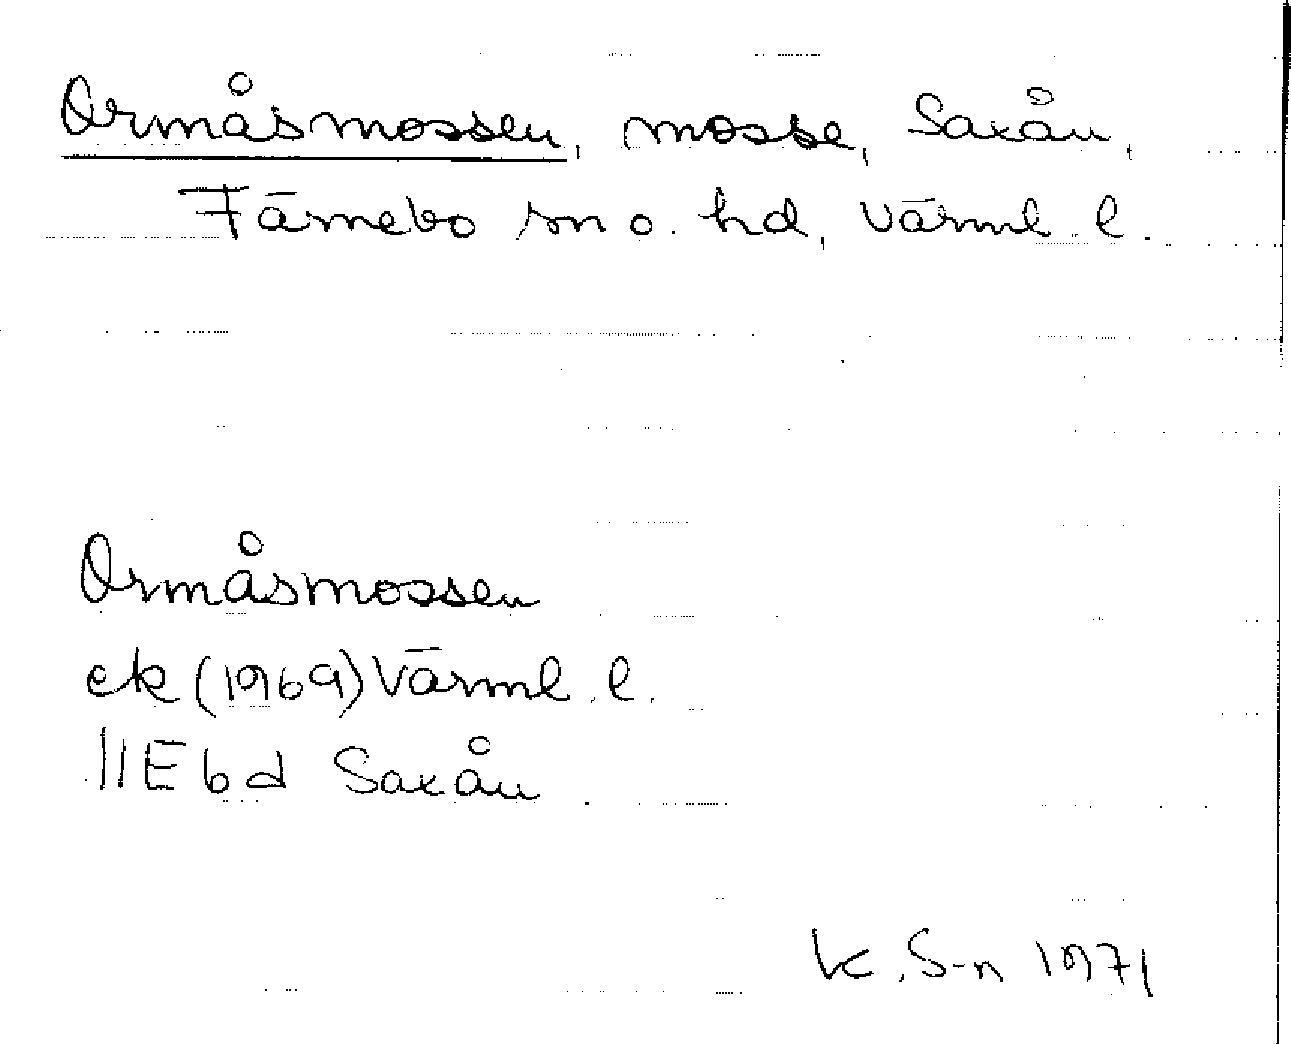 Ormåsmossen, mosse, Saxån,
Färnebo sn o. hd, Värml. l.
Ormåsmossen
ek (1969) Värml. l.
11E bd Saxån
K. S-n 1971